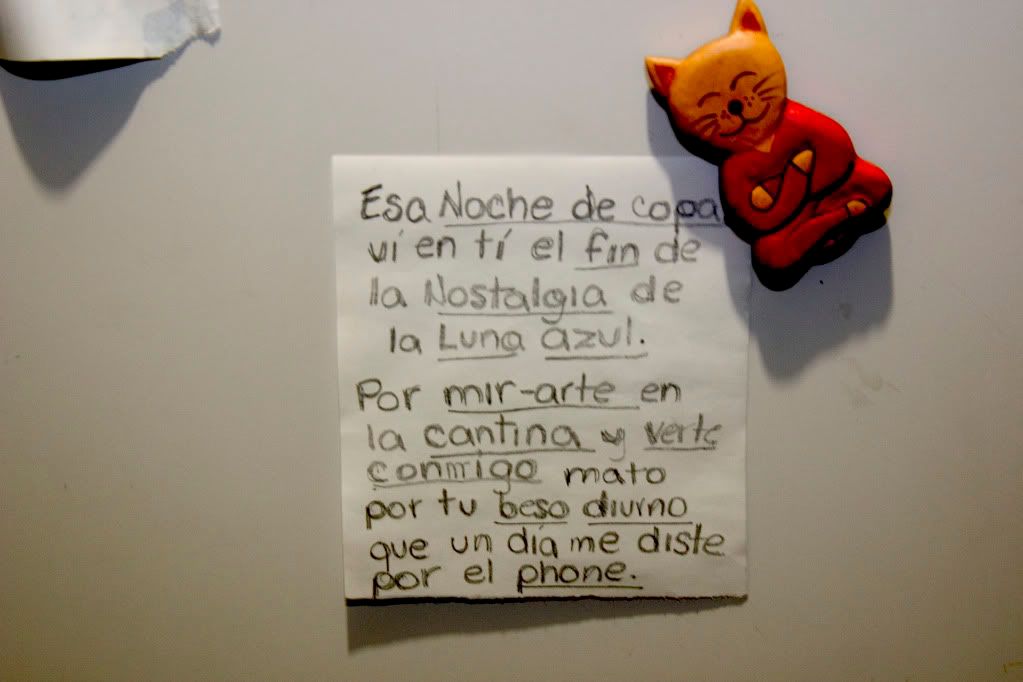 Esa Noche de copa
ví en tí el fin de
la Nostalgia de
la Luna azul.
Por mir-arte en
la cantina y verte
conmigo mato
por tu beso diurno
que un día me diste
por el phone.